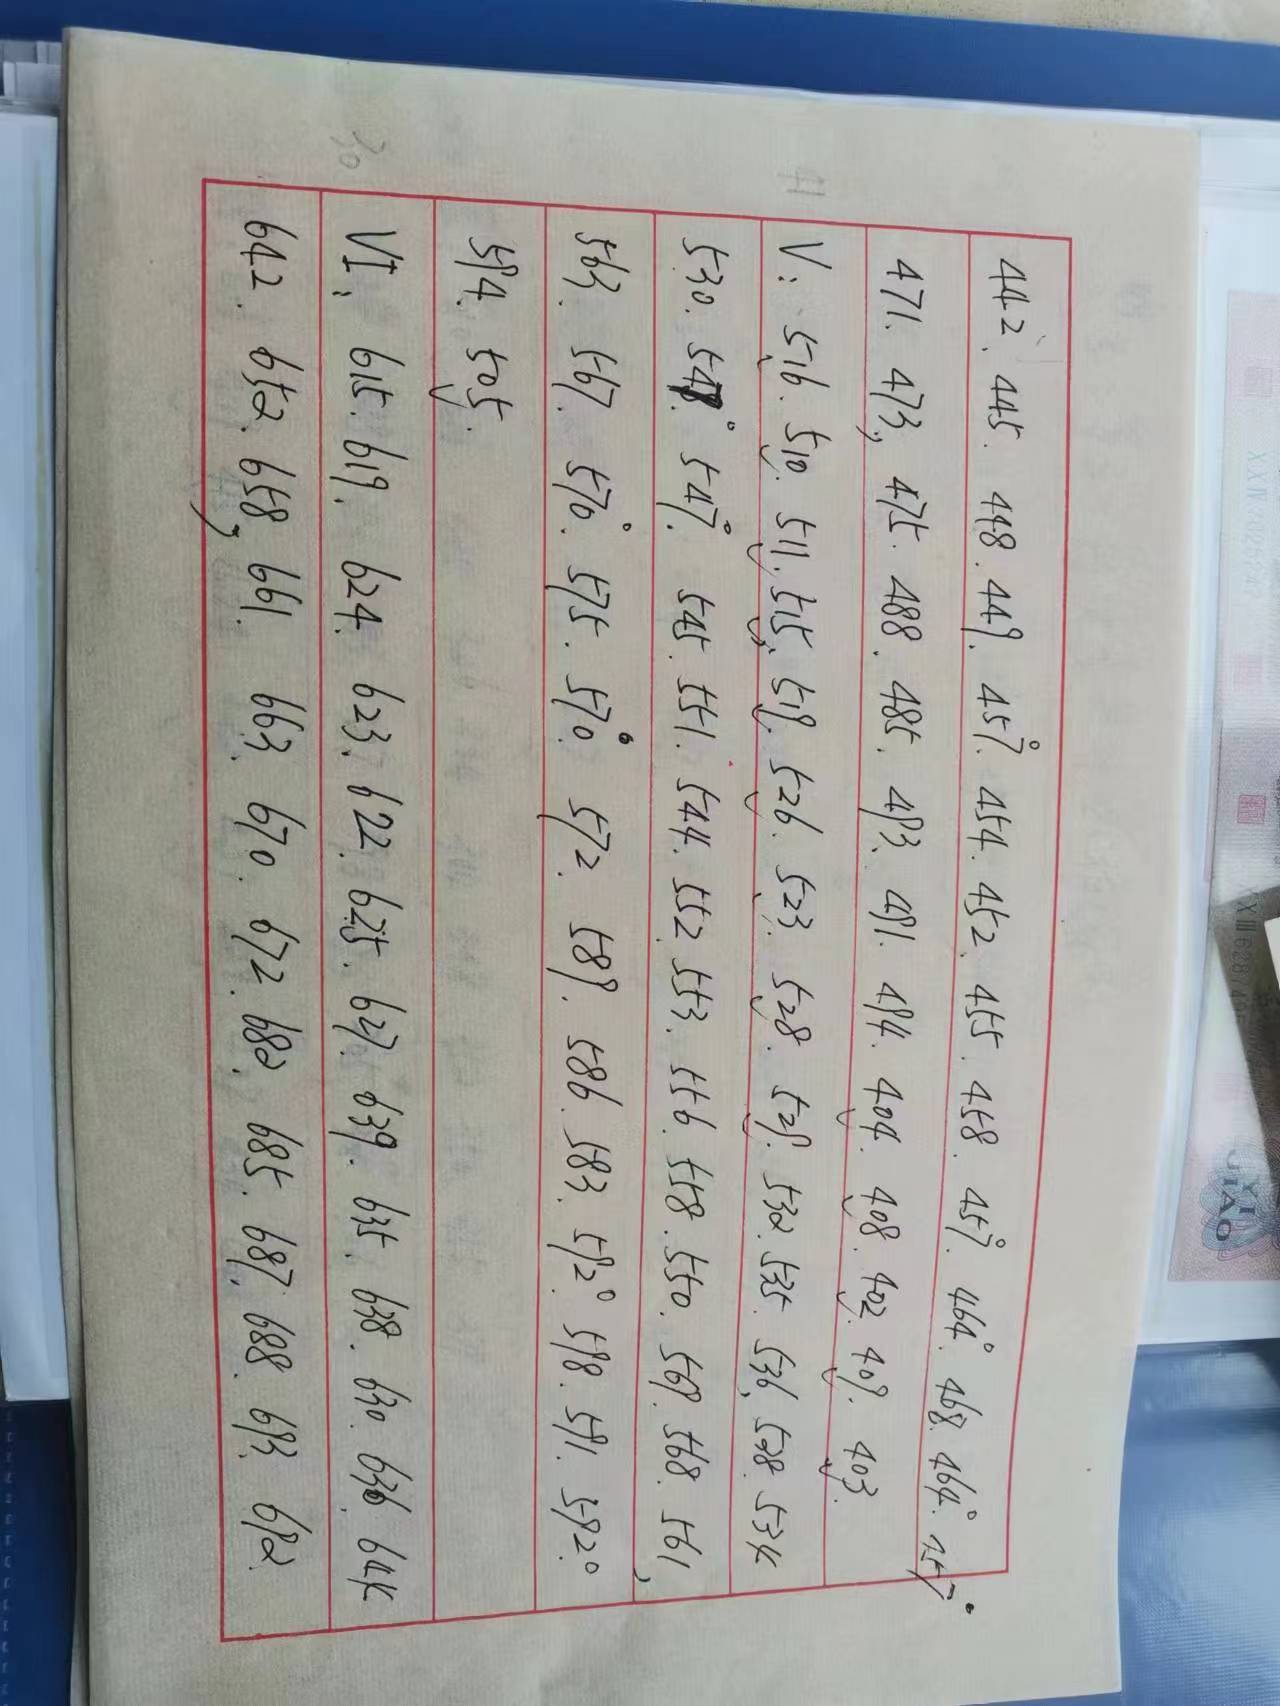 442. 445. 448. 449. 457°. 454. 452. 455. 458. 457°. 464°. 468. 464°. 457°
471. 473, 475. 488. 485. 493. 491. 494. 404. 408. 402. 409. 403.
V: 516. 510. 511. 515. 519. 526. 523. 528. 529. 532. 535. 536, 538. 534
530. 548°. 547°. 545. 551. 544. 552. 553. 556. 558. 550. 569. 568. 561,
563. 567. 570°. 575. 570°. 572. 589. 586. 583. 592°. 598. 591. 592°.
594. 505.
VI: 615. 619. 624. 623. 622. 625. 627. 639. 635. 638. 630. 636. 644
642. 652. 658, 661. 663. 670. 672. 682. 685. 687. 688. 693. 692.
30
41
YI
JIAO